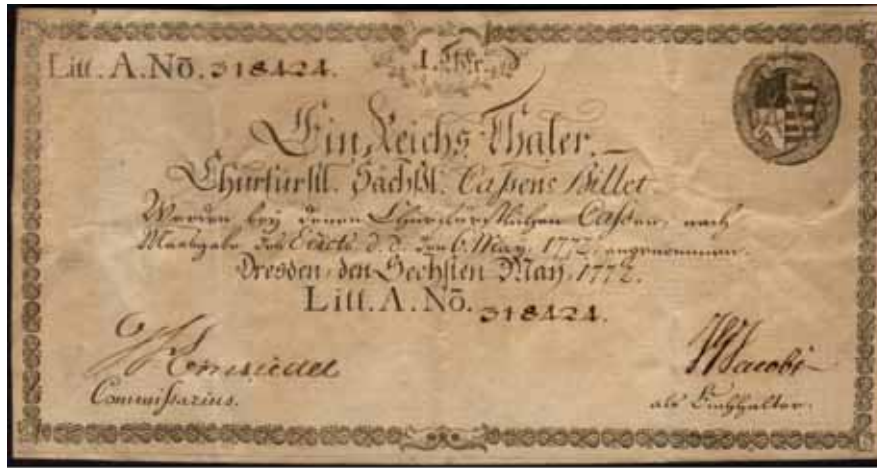 Litt. A. Nō. 318424.
1. Thlr.
Ein Reichs-Thaler.
Churfürstl. Sächßl. Caßens Billet.
Werden bey denen Churfürstlichen Caßen, nach
Maasgabe des Edicts d. d. den 6. May, 1772, angenommen.
Dresden, den Sechsten May, 1772.
Litt. A. Nō. 318424.
Einsiedel
Commißarius.
Jacobi
als Buchhalter.